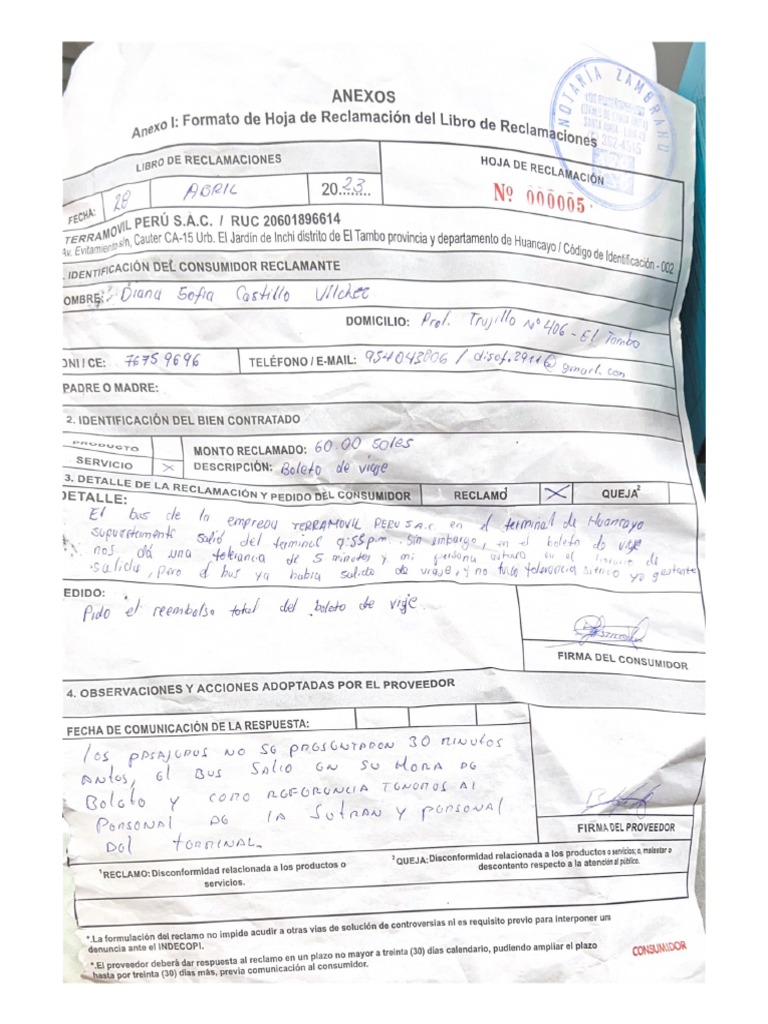 ANEXOS
Anexo I: Formato de Hoja de Reclamación del Libro de Reclamaciones
NOTARÍA ZAMBRANO
LIBRO DE RECLAMACIONES
HOJA DE RECLAMACIÓN
FECHA: 28 ABRIL 2023
Nº 000005
TERRAMOVIL PERÚ S.A.C. / RUC 20601896614
Av. Evitamiento s/n, Cauter CA-15 Urb. El Jardín de Inchi distrito de El Tambo provincia y departamento de Huancayo / Código de Identificación - 002
. IDENTIFICACIÓN DEL CONSUMIDOR RECLAMANTE
OMBRE: Diana Sofia Castillo Vilchez
DOMICILIO: Prol. Trujillo Nº 406 - El Tambo
DNI / CE: 76759696
TELÉFONO / E-MAIL: 954043806 / disof.2911@gmail.com
PADRE O MADRE:
2. IDENTIFICACIÓN DEL BIEN CONTRATADO
PRODUCTO
MONTO RECLAMADO: 60.00 soles
SERVICIO X
DESCRIPCIÓN: Boleto de viaje
3. DETALLE DE LA RECLAMACIÓN Y PEDIDO DEL CONSUMIDOR RECLAMO¹ X QUEJA²
DETALLE:
El bus de la empresa TERRAMOVIL PERU S.A.C. en el terminal de Huancayo
supuestamente salió del terminal 9:55 p.m. Sin embargo, en el boleto de viaje
nos dá una tolerancia de 5 minutos y mi persona estuvo en el horario de
salida, pero el bus ya había salido de viaje, y no tuvo tolerancia siendo yo gestante
EDIDO:
Pido el reembolso total del boleto de viaje.
FIRMA DEL CONSUMIDOR
4. OBSERVACIONES Y ACCIONES ADOPTADAS POR EL PROVEEDOR
FECHA DE COMUNICACIÓN DE LA RESPUESTA:
Los pasajeros no se presentaron 30 minutos
antes, el bus salio en su hora de
Boleto y como referencia tenemos al
personal de la Sutran y personal
del terminal.
FIRMA DEL PROVEEDOR
¹RECLAMO: Disconformidad relacionada a los productos o
servicios.
²QUEJA: Disconformidad relacionada a los productos o servicios; o, malestar o
descontento respecto a la atención al público.
*.La formulación del reclamo no impide acudir a otras vias de solución de controversias ni es requisito previo para interponer una
denuncia ante el INDECOPI.
*.El proveedor deberá dar respuesta al reclamo en un plazo no mayor a treinta (30) días calendario, pudiendo ampliar el plazo
hasta por treinta (30) días más, previa comunicación al consumidor.
CONSUMIDOR